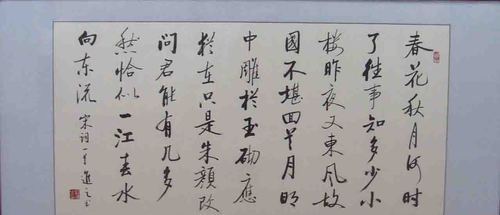 春花秋月何时
了往事知多少小
楼昨夜又東风故
國不堪回首月明
中雕栏玉砌應
犹在只是朱顏改
問君能有几多
愁恰似一江春水
向东流 宋词